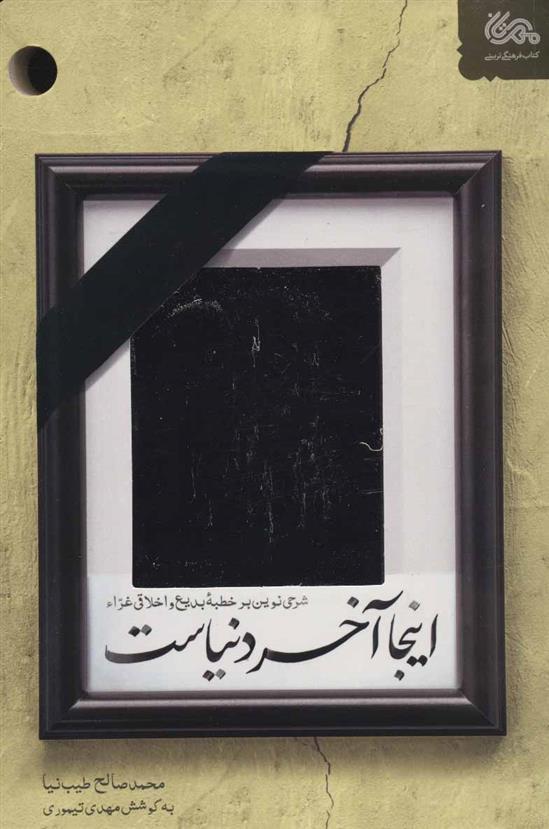 مهرستان
کتاب فرهنگی تربیتی
شرحی نوین بر خطبهٔ بدیع و اخلاقی غرّاء
اینجا آخر دنیاست
محمدصالح طیب‌نیا
به کوشش مهدی تیموری